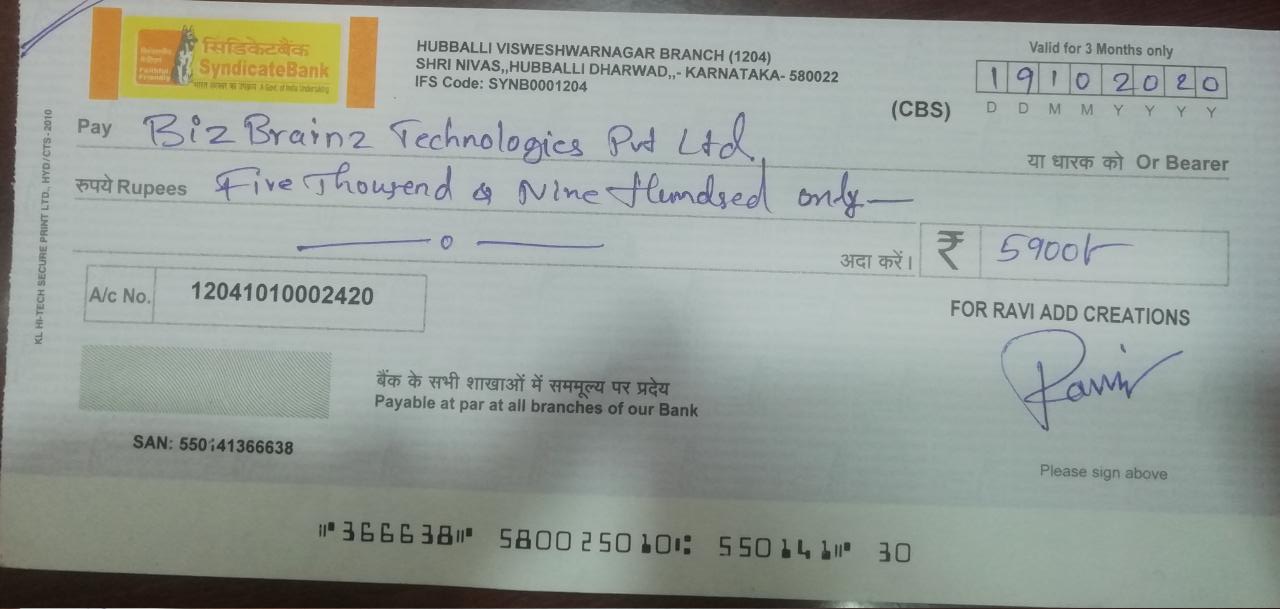 विश्वसनीय
Faithful
Friendly
सिंडिकेटबैंक
SyndicateBank
भारत सरकार का उपक्रम A Govt. of India Undertaking
HUBBALLI VISWESHWARNAGAR BRANCH (1204)
SHRI NIVAS,,HUBBALLI DHARWAD,,- KARNATAKA- 580022
IFS Code: SYNB0001204
(CBS)
Valid for 3 Months only
1 9 1 0 2 0 2 0
D D M M Y Y Y Y
Pay Biz Brainz Technologies Pvt Ltd.
या धारक को Or Bearer
रुपये Rupees Five Thousend & Nine Hundred only—
— 0 —
अदा करें। ₹ 5900/-
A/c No. 12041010002420
FOR RAVI ADD CREATIONS
Ravi
बैंक के सभी शाखाओं में सममूल्य पर प्रदेय
Payable at par at all branches of our Bank
SAN: 550141366638
Please sign above
⑈366638⑈ 580025010⑆ 550141⑈ 30
KL HI-TECH SECURE PRINT LTD., HYD/CTS-2010